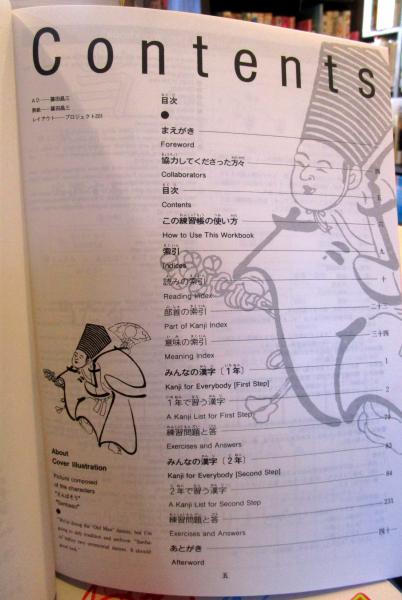 Contents
AD——藤田昌三
表紙——藤田昌三
レイアウト——プロジェクト201
目次
●
まえがき
Foreword
協力してくださった方々 四
Collaborators
目次 五
Contents
この練習帳の使い方 六
How to Use This Workbook
索引 七
Indices
読みの索引 十
Reading Index
部首の索引 二十三
Part of Kanji Index
意味の索引 三十四
Meaning Index
みんなの漢字〔1年〕 1
Kanji for Everybody [First Step]
1年で習う漢字 2
A Kanji List for First Step
練習問題と答
Exercises and Answers
みんなの漢字〔2年〕 83
Kanji for Everybody [Second Step]
2年で習う漢字 84
A Kanji List for Second Step
練習問題と答 231
Exercises and Answers
あとがき 四十一
Afterword
About
Cover Illustration
Picture composed
of the characters
"さんばそう"
"Sanbaso"
●
"We're doing the 'Old Man' dances, but I'm
going to defy tradition and perform 'Sanba-
so' before two ceremonial dances. It should
good luck."
五